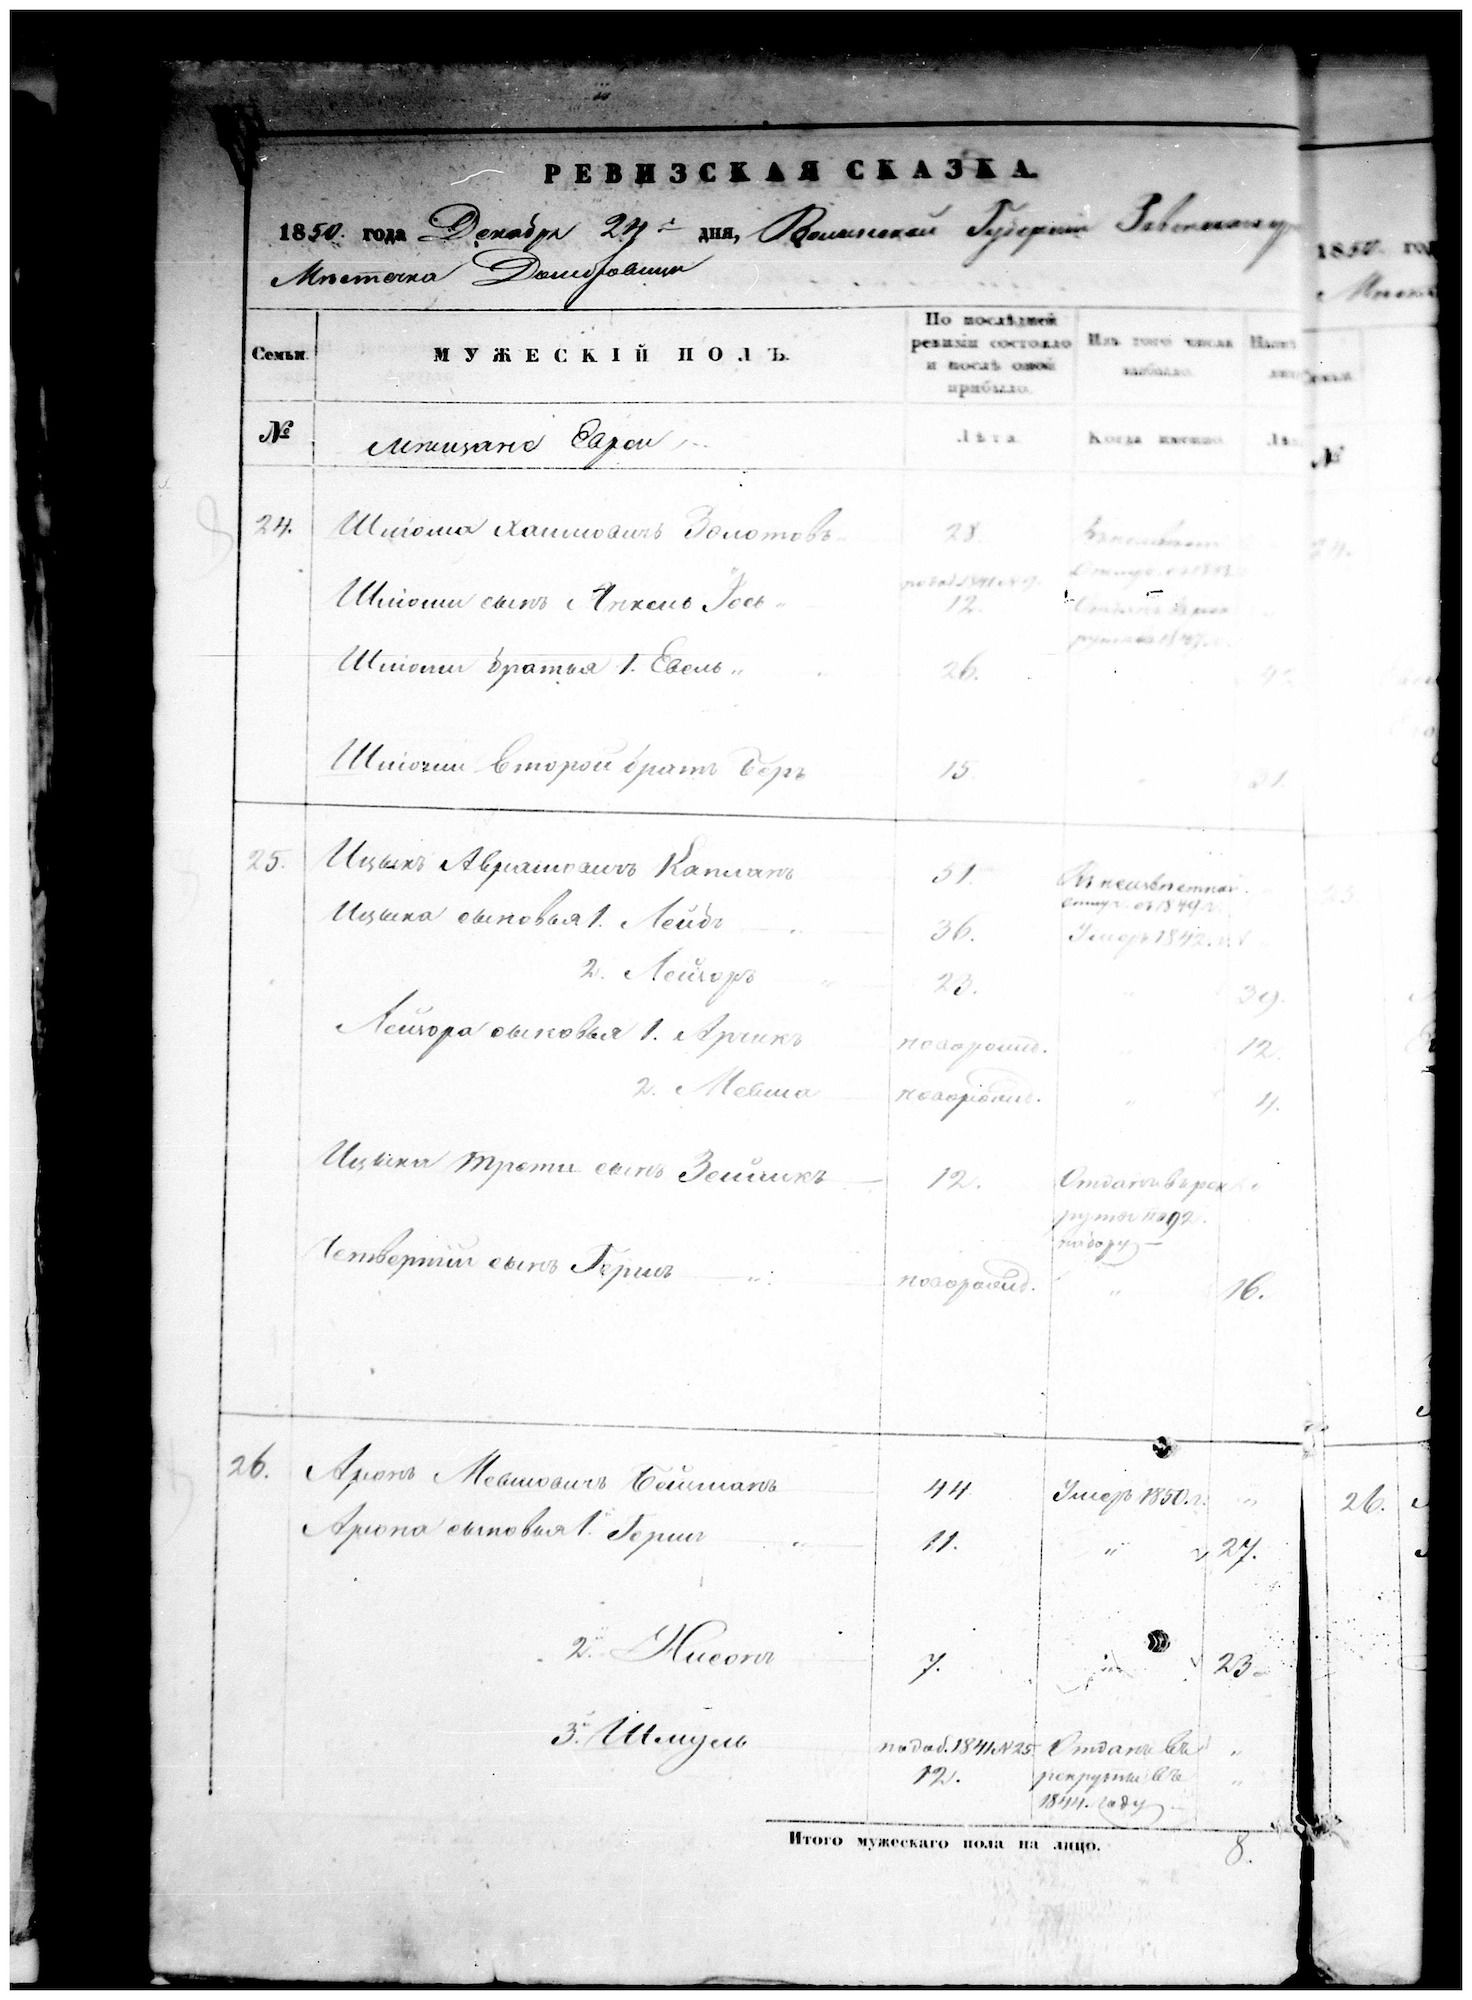 РЕВИЗСКАЯ СКАЗКА.
1850. года Декабря дня, Волынской Губернии Ровенскаго
Мѣстечка Домбровицы
Семьи. МУЖЕСКІЙ ПОЛЪ. По послѣдней ревизіи состояло и послѣ оной прибыло. Изъ того числа выбыло.
№ мѣщане Евреи Лѣта. Когда именно.
24. Шліома Хаимовичъ Золотовъ 28.
Шліомы сынъ Янкель Іось 12.
Шліомы братья 1. Евель 26. 42
Шліомы второй братъ Беръ 15. 31.
25. Ицыкъ Аврамовичъ Капланъ 51. Въ неизвѣстной
отлуч. съ 1849 г.
Ицыка сыновья 1. Лейбъ 36. Умеръ 1842. г.
2. Лейзоръ 23. " 39.
Лейзора сыновья 1. Арчикъ новорожд. " 12.
2. Мевша новорожд. " 4.
Ицыка третій сынъ Зейликъ 12. Отданъ въ рек
руты по 92.
набору
Четвертый сынъ Гершъ новорожд. " 16.
26. Аронъ Мевшовичъ Бейгманъ 44 Умеръ 1850. г. "
Арона сыновья 1. Гершъ 11. " 27.
2. Нисонъ 7. " 23
3. Шмуль по доб. 1841 № 25 Отданъ въ "
12. рекруты въ "
1844. году
Итого мужескаго пола на лицо. 8.
1850. год
№
24.
26.